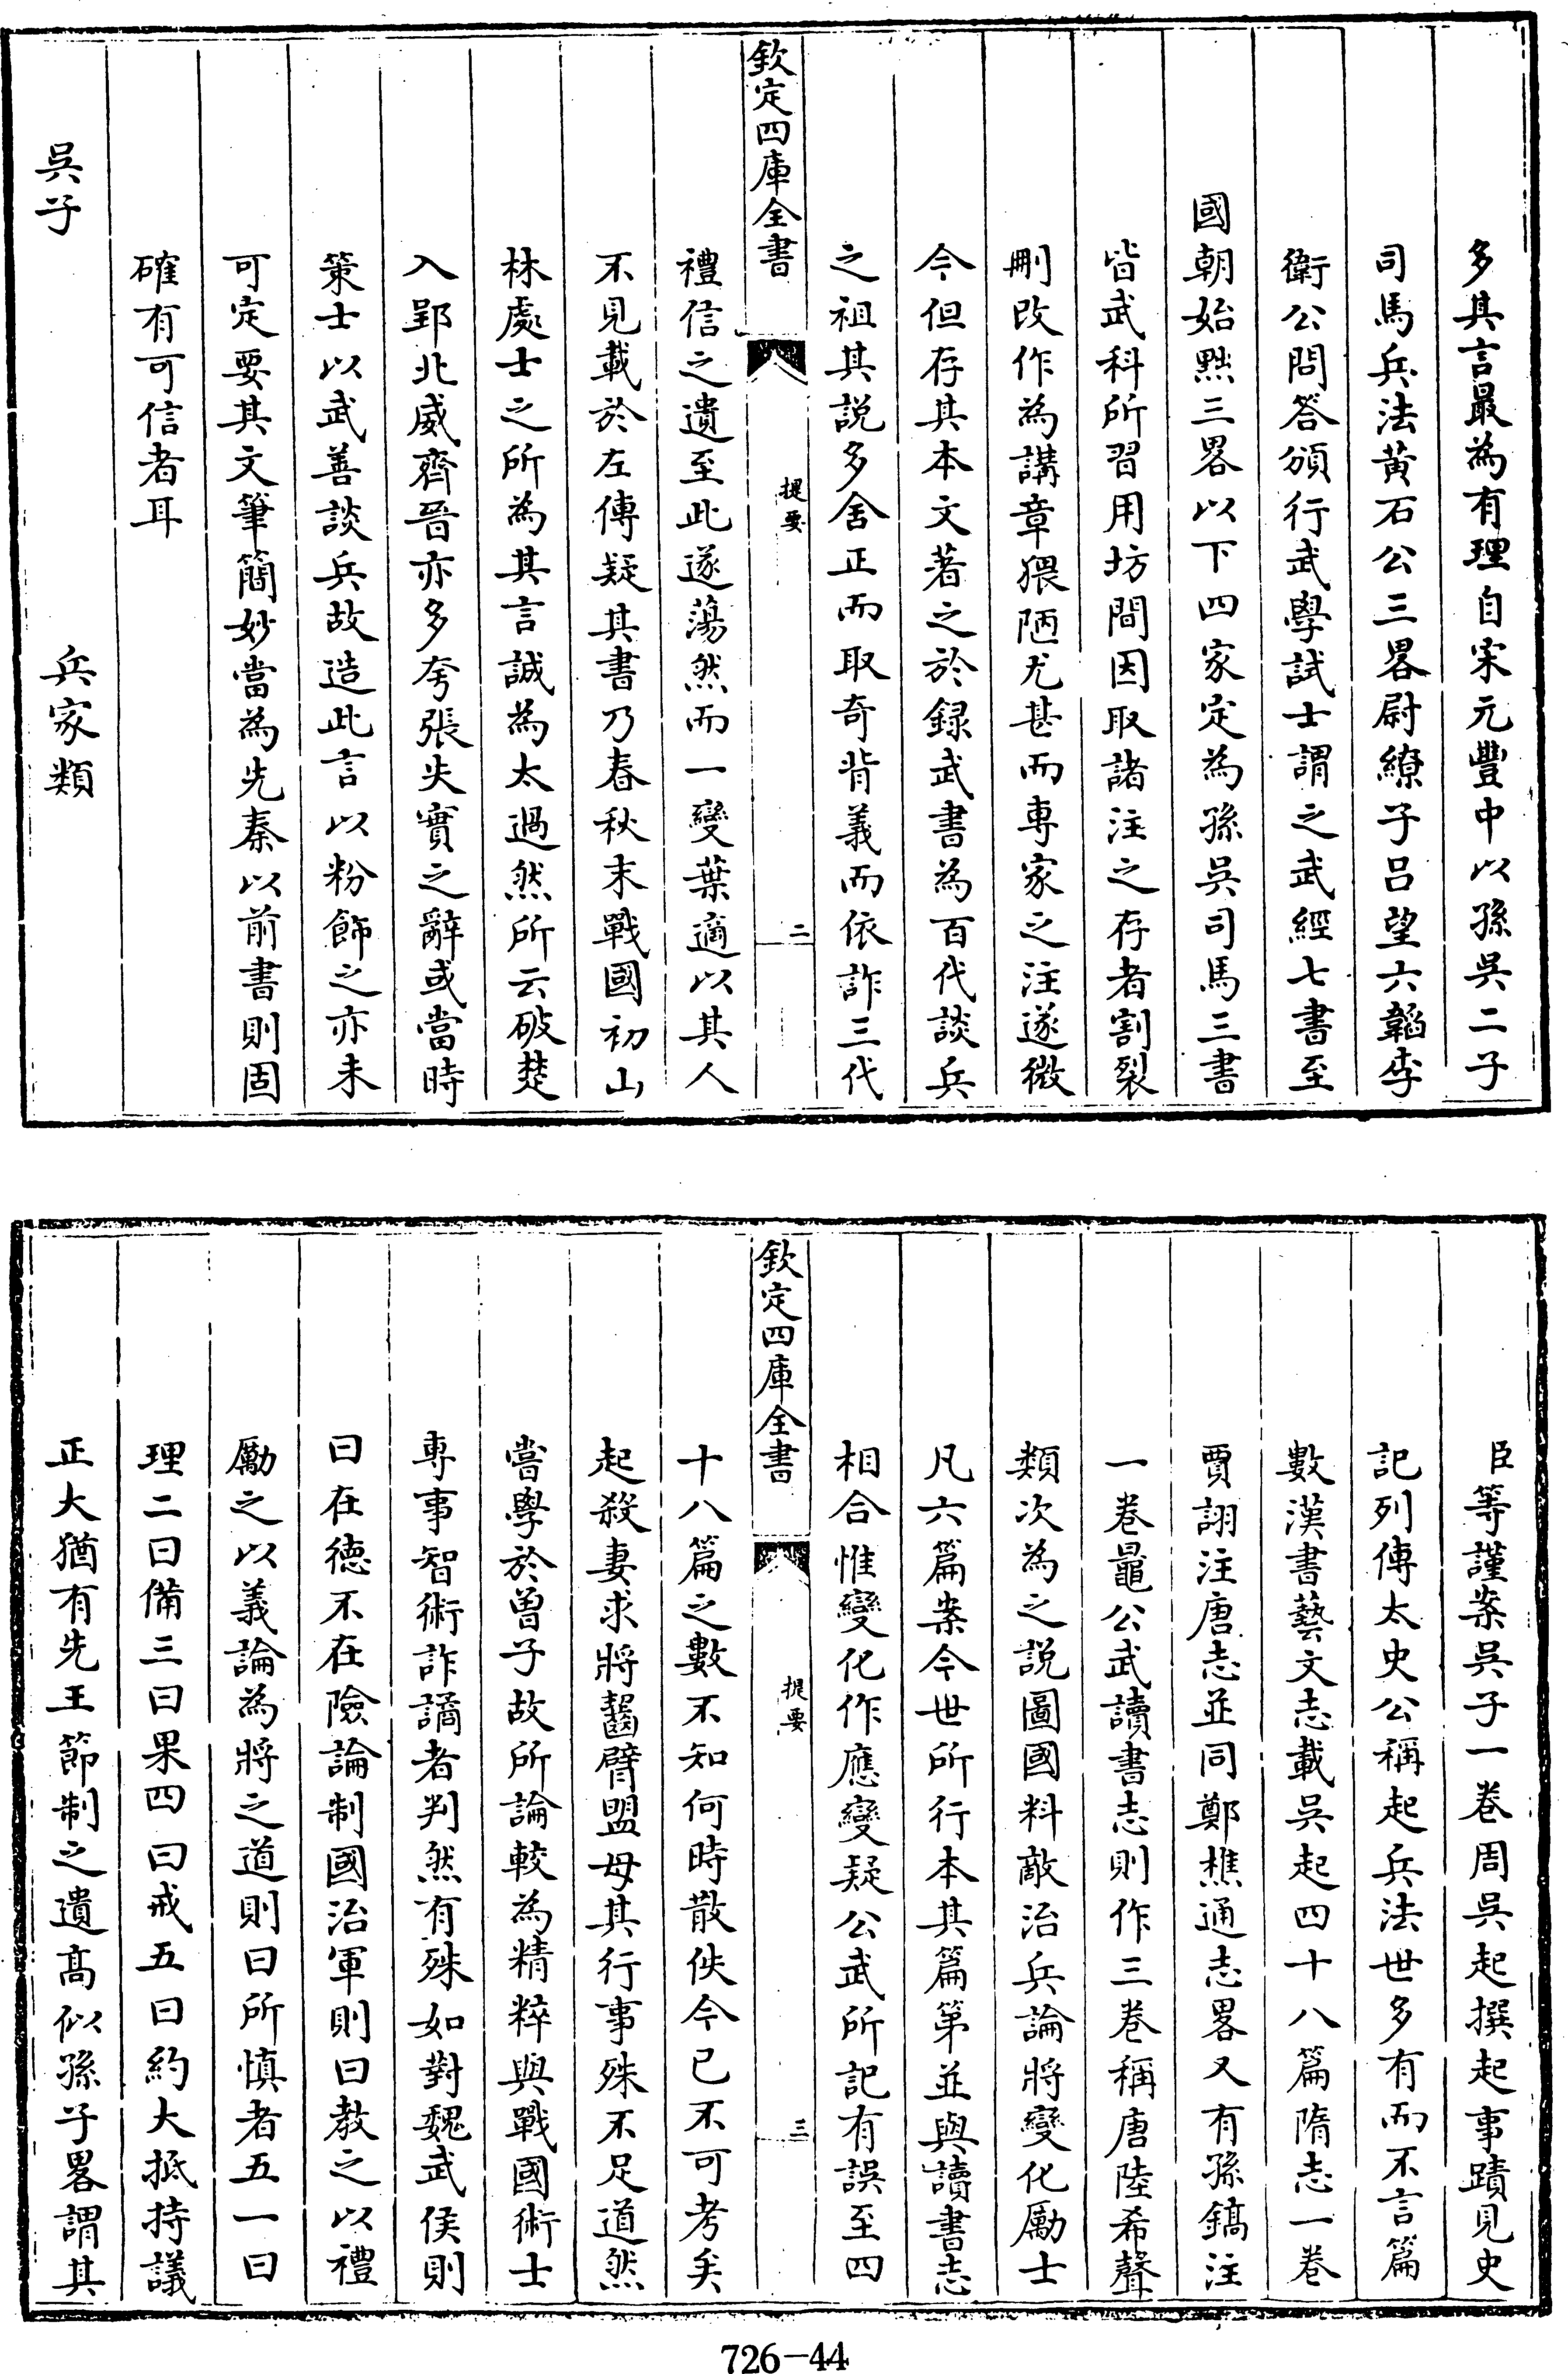 多其言最為有理自宋元豐中以孫吳二子
司馬兵法黃石公三畧尉繚子呂望六韜李
衛公問答頒行武學試士謂之武經七書至
國朝始黜三畧以下四家定為孫吳司馬三書
皆武科所習用坊間因取諸注之存者割裂
刪改作為講章猥陋尤甚而專家之注遂微
今但存其本文著之於録武書為百代談兵
之祖其説多舍正而取奇背義而依詐三代
欽定四庫全書
提要
二
禮信之遺至此遂蕩然而一變葉適以其人
不見載於左傳疑其書乃春秋末戰國初山
林處士之所為其言誠為太過然所云破楚
入郢北威齊晉亦多夸張失實之辭或當時
策士以武善談兵故造此言以粉飾之亦未
可定要其文筆簡妙當為先秦以前書則固
確有可信者耳
吳子 兵家類
臣等謹案吳子一卷周吳起撰起事蹟見史
記列傳太史公稱起兵法世多有而不言篇
數漢書藝文志載吳起四十八篇隋志一卷
賈詡注唐志並同鄭樵通志畧又有孫鎬注
一卷鼂公武讀書志則作三卷稱唐陸希聲
類次為之說圖國料敵治兵論將變化勵士
凡六篇案今世所行本其篇第並與讀書志
相合惟變化作應變疑公武所記有誤至四
欽定四庫全書
提要
三
十八篇之數不知何時散佚今已不可考矣
起殺妻求將齧臂盟母其行事殊不足道然
嘗學於曾子故所論較為精粹與戰國術士
專事智術詐譎者判然有殊如對魏武侯則
曰在德不在險論制國治軍則曰教之以禮
勵之以義論為將之道則曰所慎者五一曰
理二曰備三曰果四曰戒五曰約大抵持議
正大猶有先王節制之遺高似孫子畧謂其
726-44